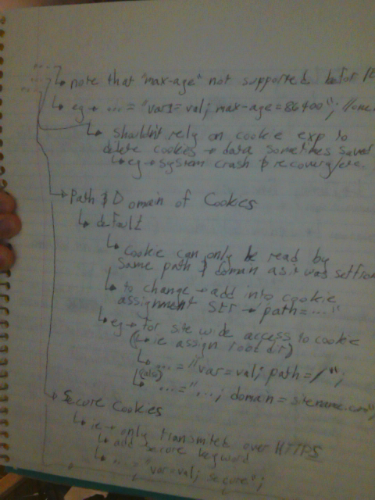 ↳ note that "max-age" not supported before
↳ eg → ... = "var1=val; max-age=86400"; //one
↳ shouldn't rely on cookie exp to
delete cookies → data sometimes saved
↳ eg → system crash & recovery/etc.
↳ Path & Domain of Cookies
↳ default
↳ cookie can only be read by
same path & domain as it was set from
↳ to change → add into cookie
assignment str → path=..."
↳ eg → for site wide access to cookie
(↳ ie assign root dir)
↳ ... = "var=val; path=/";
(also)
↳ ... = "...; domain=sitename.com";
↳ Secure Cookies
↳ ie → only transmitted over HTTPS
↳ add secure keyword
↳ ... = "var=val; secure";